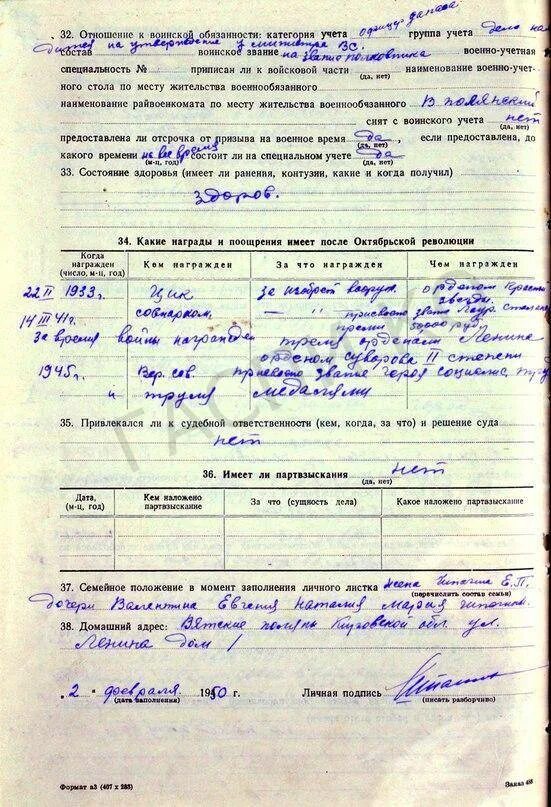 32. Отношение к воинской обязанности: категория учета офицер запаса группа учета дело на-
ходится на утверждение у министра ВС.
состав воинское звание на звание полковника военно-учетная
специальность № приписан ли к войсковой части (да, нет) наименование военно-учет-
ного стола по месту жительства военнообязанного
наименование райвоенкомата по месту жительства военнообязанного В полянский
снят с воинского учета нет (да, нет)
предоставлена ли отсрочка от призыва на военное время да (да, нет), если предоставлена, до
какого времени на все время (м-ц, год) состоит ли на специальном учете да (да, нет)
33. Состояние здоровья (имеет ли ранения, контузии, какие и когда получил)
Здоров.
34. Какие награды и поощрения имеет после Октябрьской революции
Когда награжден (число, м-ц, год) Кем награжден За что награжден Чем награжден
22 II 1933г. Цик за изобрет вооруж. орденом Красной
звезды.
14 III 41г. совнарком. — " — присвоено звание Лаур. Сталинс
премии 50000 руб.
за время войны награжден тремя орденами Ленина
орденом Суворова II степени
1945г. Вер. сов. присвоено звание героя социалис. труда
и тремя медалями
35. Привлекался ли к судебной ответственности (кем, когда, за что) и решение суда
нет
36. Имеет ли партвзыскания нет
(да, нет)
Дата, (м-ц, год) Кем наложено партвзыскание За что (сущность дела) Какое наложено партвзыскание
37. Семейное положение в момент заполнения личного листка жена Шпагина Е.П.
(перечислить состав семьи)
дочери Валентина Евгения Наталия Мария Шпагины.
38. Домашний адрес: Вятские поляны Кировской обл. ул.
Ленина дом 1
"2" февраля 1950 г. Личная подпись Шпагин
(дата заполнения) (писать разборчиво)
Формат а3 (407 x 288) Заказ